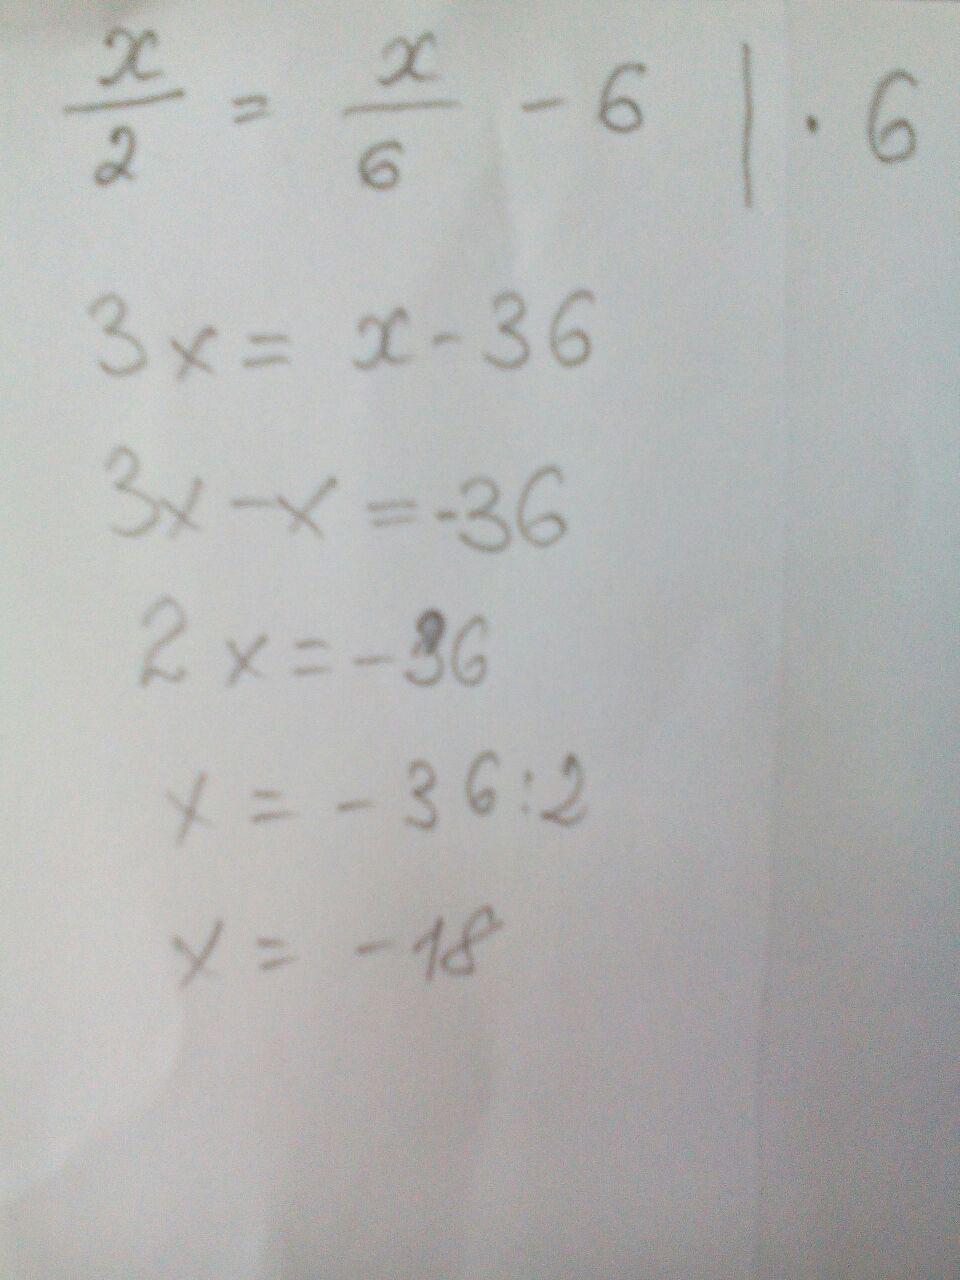 x/2 = x/6 - 6 | · 6
3x = x - 36
3x - x = -36
2x = -36
x = -36:2
x = -18